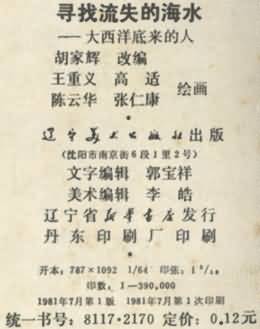 寻找流失的海水
——大西洋底来的人
胡家辉 改编
王重义 高适
陈云华 张仁康 绘画
辽宁美术出版社出版
(沈阳市南京街6段1里2号)
文字编辑 郭宝祥
美术编辑 李皓
辽宁省新华书店发行
丹东印刷厂印刷
开本:787×1092 1/64 印张:1 5/16
印数:1—390,000
1981年7月第1版 1981年7月第1次印刷
统一书号:8117·2170 定价:0.12元